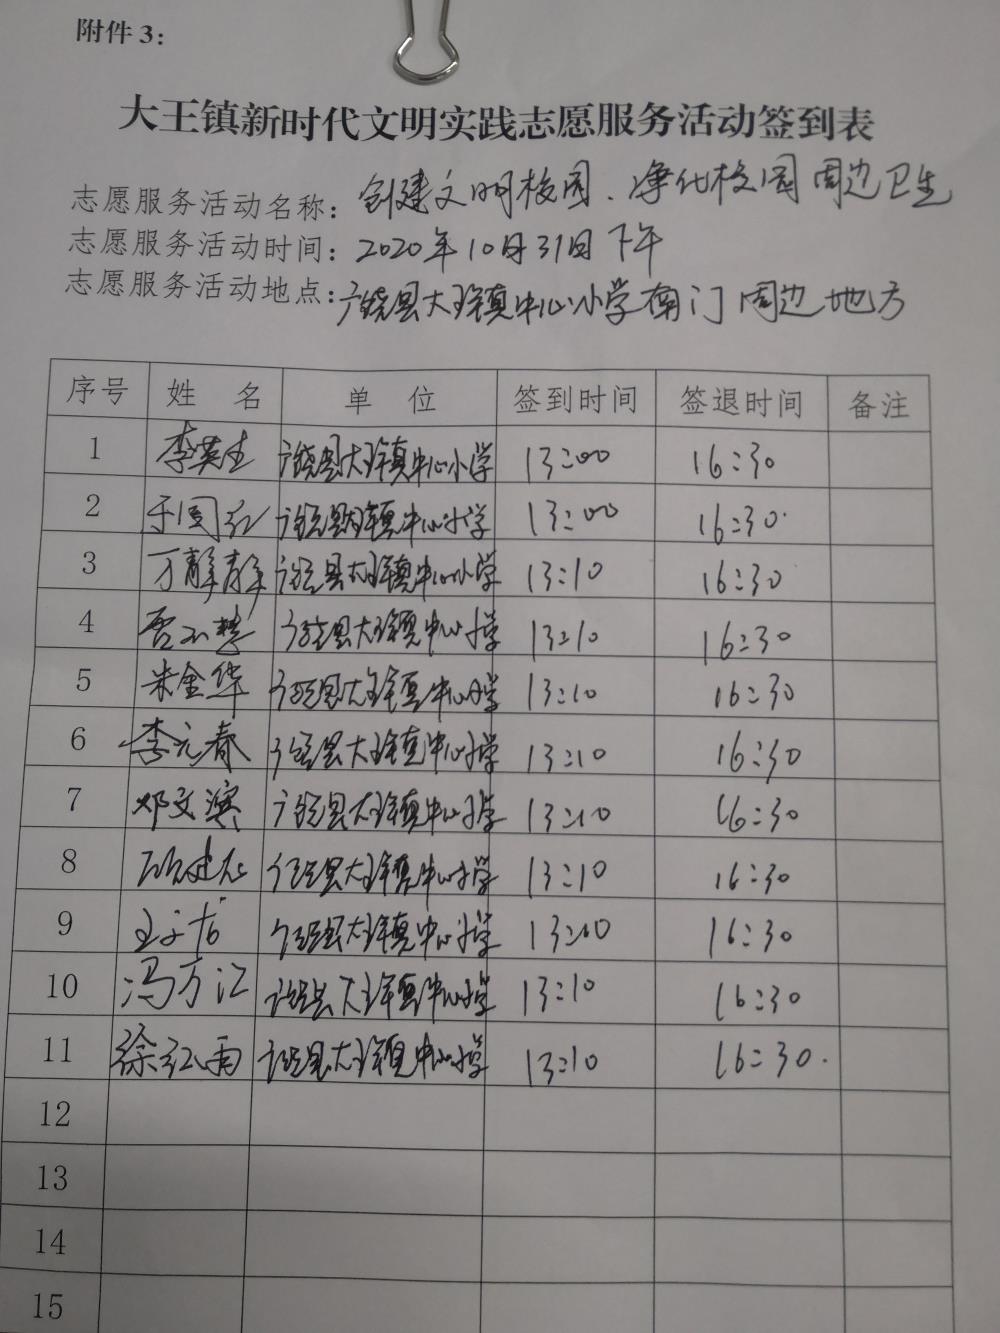 附件3：
大王镇新时代文明实践志愿服务活动签到表
志愿服务活动名称：创建文明校园、净化校园周边卫生
志愿服务活动时间：2020年10月31日下午
志愿服务活动地点：广饶县大王镇中心小学南门周边地方
序号 姓名 单位 签到时间 签退时间 备注
1 李英生 广饶县大王镇中心小学 13:00 16:30
2 于国红 广饶县大王镇中心小学 13:00 16:30
3 万静静 广饶县大王镇中心小学 13:10 16:30
4 广饶县大王镇中心小学 13:10 16:30
5 朱金华 广饶县大王镇中心小学 13:10 16:30
6 李元春 广饶县大王镇中心小学 13:10 16:30
7 邓文滨 广饶县大王镇中心小学 13:10 16:30
8 广饶县大王镇中心小学 13:10 16:30
9 广饶县大王镇中心小学 13:10 16:30
10 冯万江 广饶县大王镇中心小学 13:10 16:30
11 徐红雨 广饶县大王镇中心小学 13:10 16:30
12
13
14
15